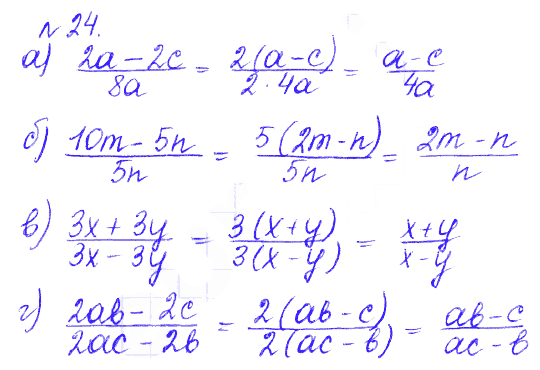 № 24.
а) (2a - 2c)/(8a) = (2(a-c))/(2·4a) = (a-c)/(4a)
б) (10m - 5n)/(5n) = (5(2m-n))/(5n) = (2m-n)/n
в) (3x + 3y)/(3x - 3y) = (3(x+y))/(3(x-y)) = (x+y)/(x-y)
г) (2ab - 2c)/(2ac - 2b) = (2(ab-c))/(2(ac-b)) = (ab-c)/(ac-b)